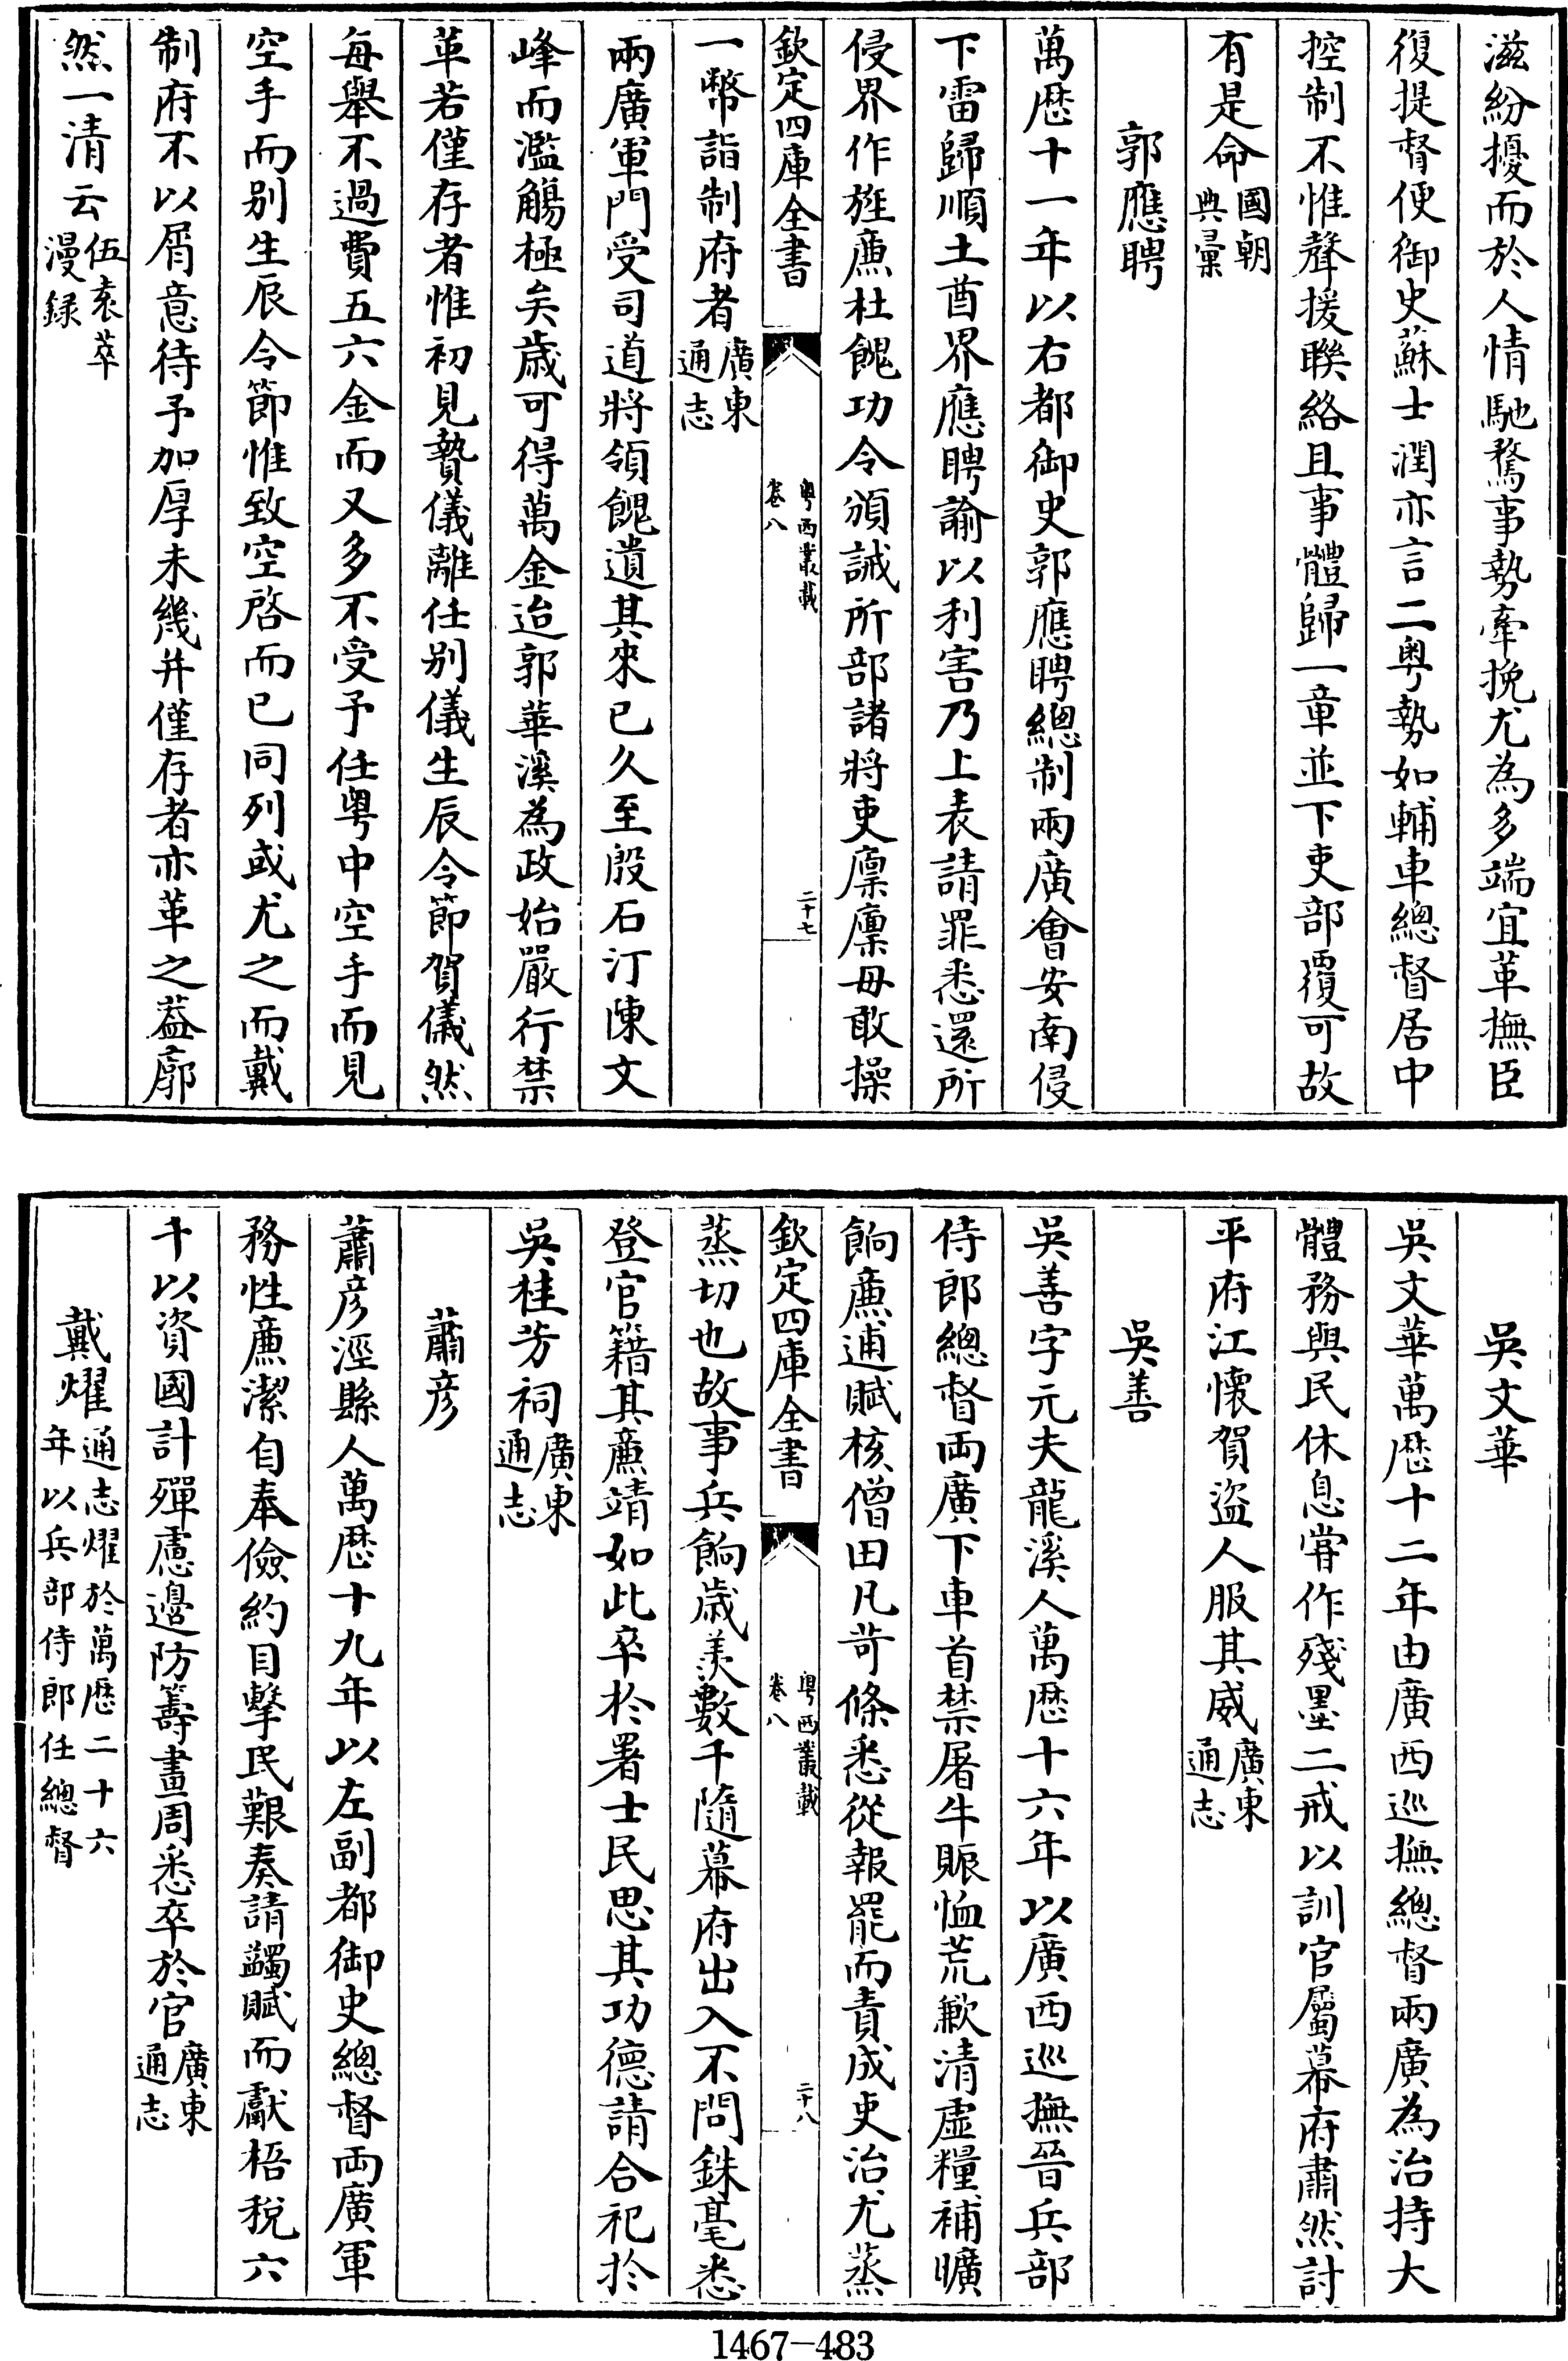 滋紛擾而於人情馳騖事勢牽挽尤為多端宜革撫臣
復提督便御史蘇士潤亦言二粤勢如輔車總督居中
控制不惟聲援聯絡且事體歸一章並下吏部覆可故
有是命國朝典彙
郭應聘
萬歴十一年以右都御史郭應聘總制兩廣會安南侵
下雷歸順土酋界應聘諭以利害乃上表請罪悉還所
侵界作旌廉杜餽功令頒誡所部諸將吏廩廩毋敢操
欽定四庫全書
粤西叢載
卷八
二十七
一幣詣制府者廣東通志
兩廣軍門受司道將領餽遺其來已久至殷石汀陳文
峰而濫觴極矣歲可得萬金迨郭華溪為政始嚴行禁
革若僅存者惟初見贄儀離任别儀生辰令節賀儀然
每舉不過費五六金而又多不受予任粤中空手而見
空手而别生辰令節惟致空啓而已同列或尤之而戴
制府不以屑意待予加厚未幾并僅存者亦革之葢廓
然一清云伍袁萃漫録
吳文華
吳文華萬歴十二年由廣西巡撫總督兩廣為治持大
體務與民休息嘗作殘墨二戒以訓官屬幕府肅然討
平府江懷賀盜人服其威廣東通志
吳善
吳善字元夫龍溪人萬歴十六年以廣西巡撫晉兵部
侍郎總督両廣下車首禁屠牛賑恤荒歉清虚糧補曠
餉廉逋賦核僧田凡苛條悉從報罷而責成吏治尤蒸
欽定四庫全書
粤西叢載
卷八
二十八
蒸切也故事兵餉歲羡數千隨幕府出入不問銖毫悉
登官籍其亷靖如此卒於署士民思其功德請合祀於
吳桂芳祠廣東通志
蕭彦
蕭彦涇縣人萬歴十九年以左副都御史總督両廣軍
務性廉潔自奉儉約目擊民艱奏請蠲賦而獻梧税六
千以資國計殫慮邊防籌畫周悉卒於官廣東通志
戴燿通志燿於萬歴二十六年以兵部侍郎任總督
1467-483